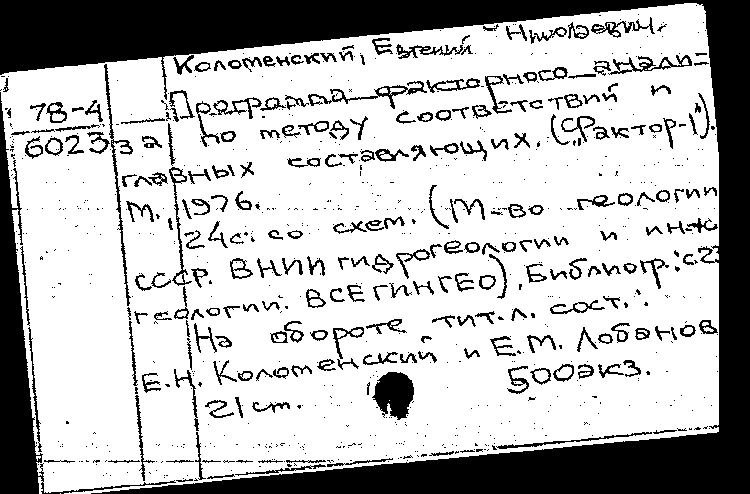 Коломенский, Евгений Николаевич.
78-4
6023
Программа факторного анали=
за по методу соответствий и
главных составляющих. („Фактор-1").
М., 1976.
24с. со схем. (М-во геологии
СССР. ВНИИ гидрогеологии и инж
геологии. ВСЕГИНГЕО), Библиогр.: с.23
На обороте тит.л. сост.:
Е.Н. Коломенский и Е.М. Лобанов
21 cm. 500экз.